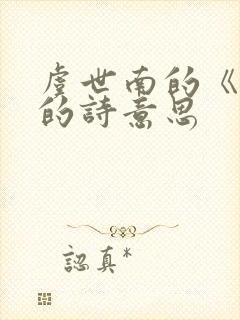 虞世南的《
的詩意思
認真*